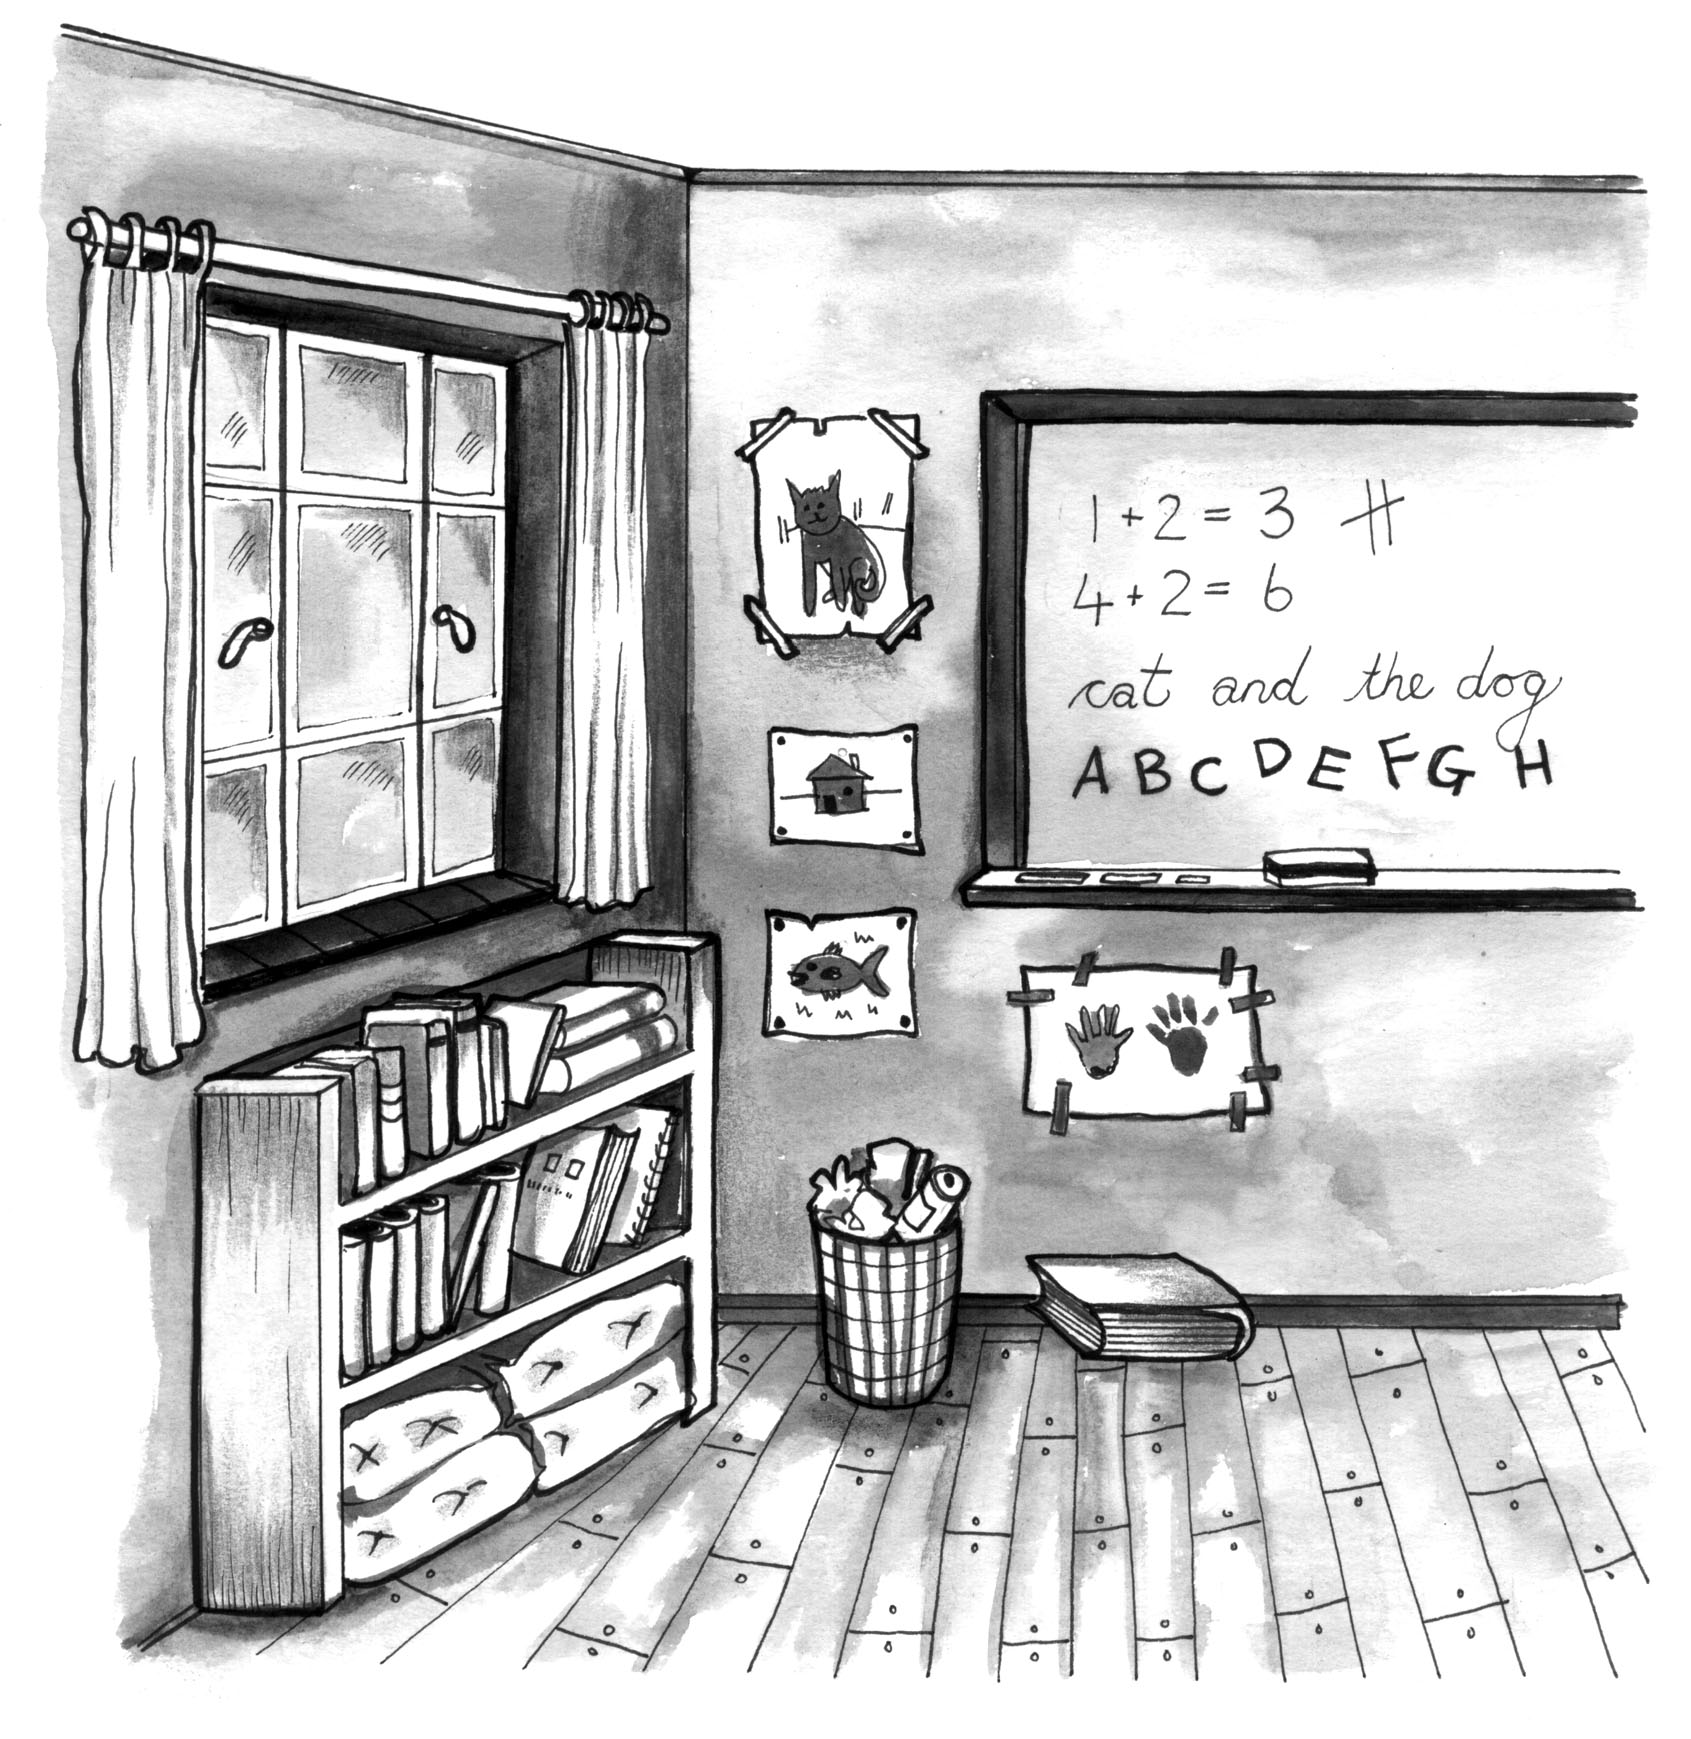 1 + 2 = 3 #
4 + 2 = 6
cat and the dog
A B C D E F G H